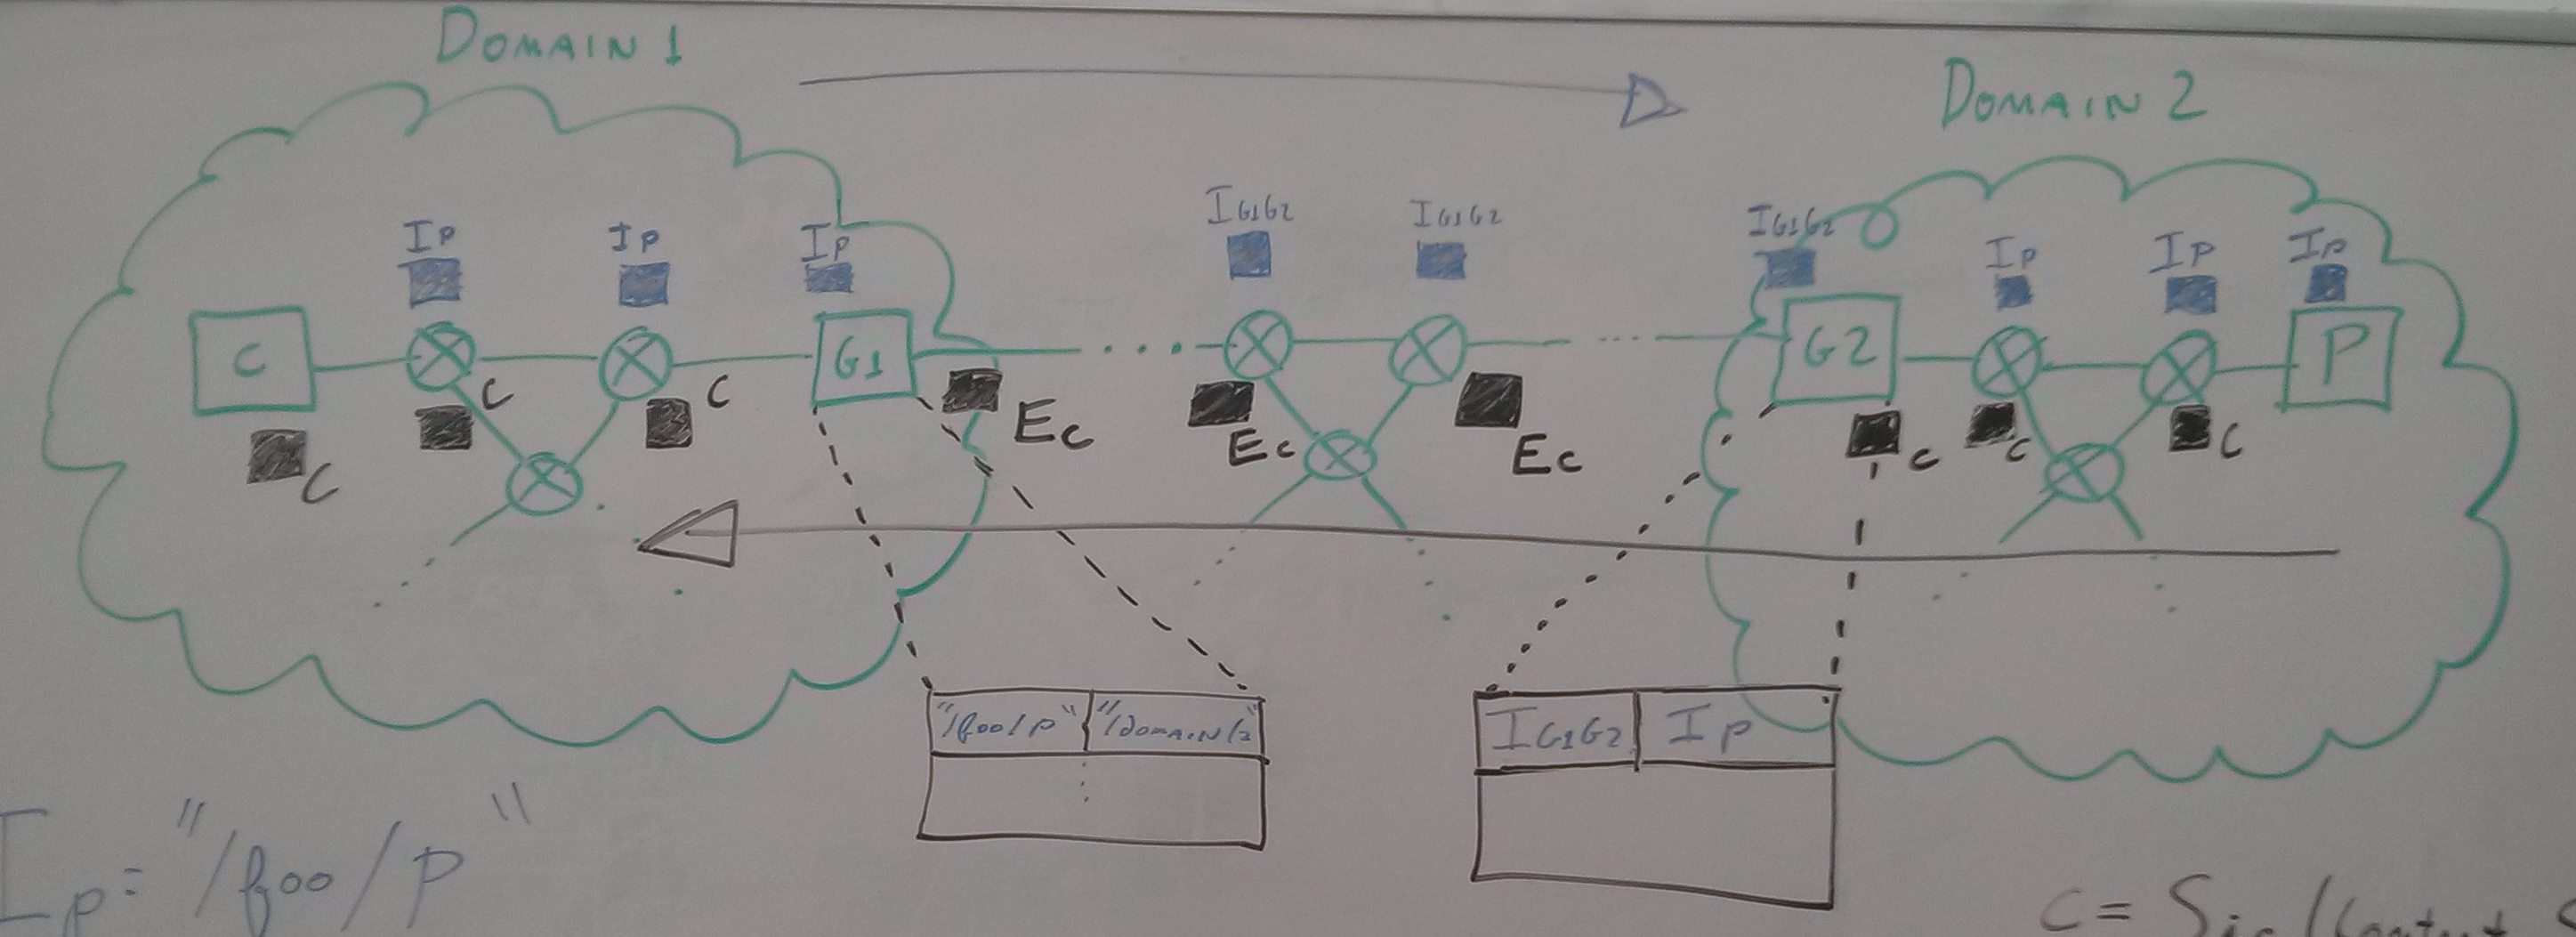 DOMAIN 1
DOMAIN 2
IP IP IP IG1G2 IG1G2 IG1G2 IP IP IP
C G1 G2 P
C C C Ec Ec Ec C C C
"/foo/P" "/DOMAIN/2"
IG1G2 IP
IP = "/foo/P"
C =